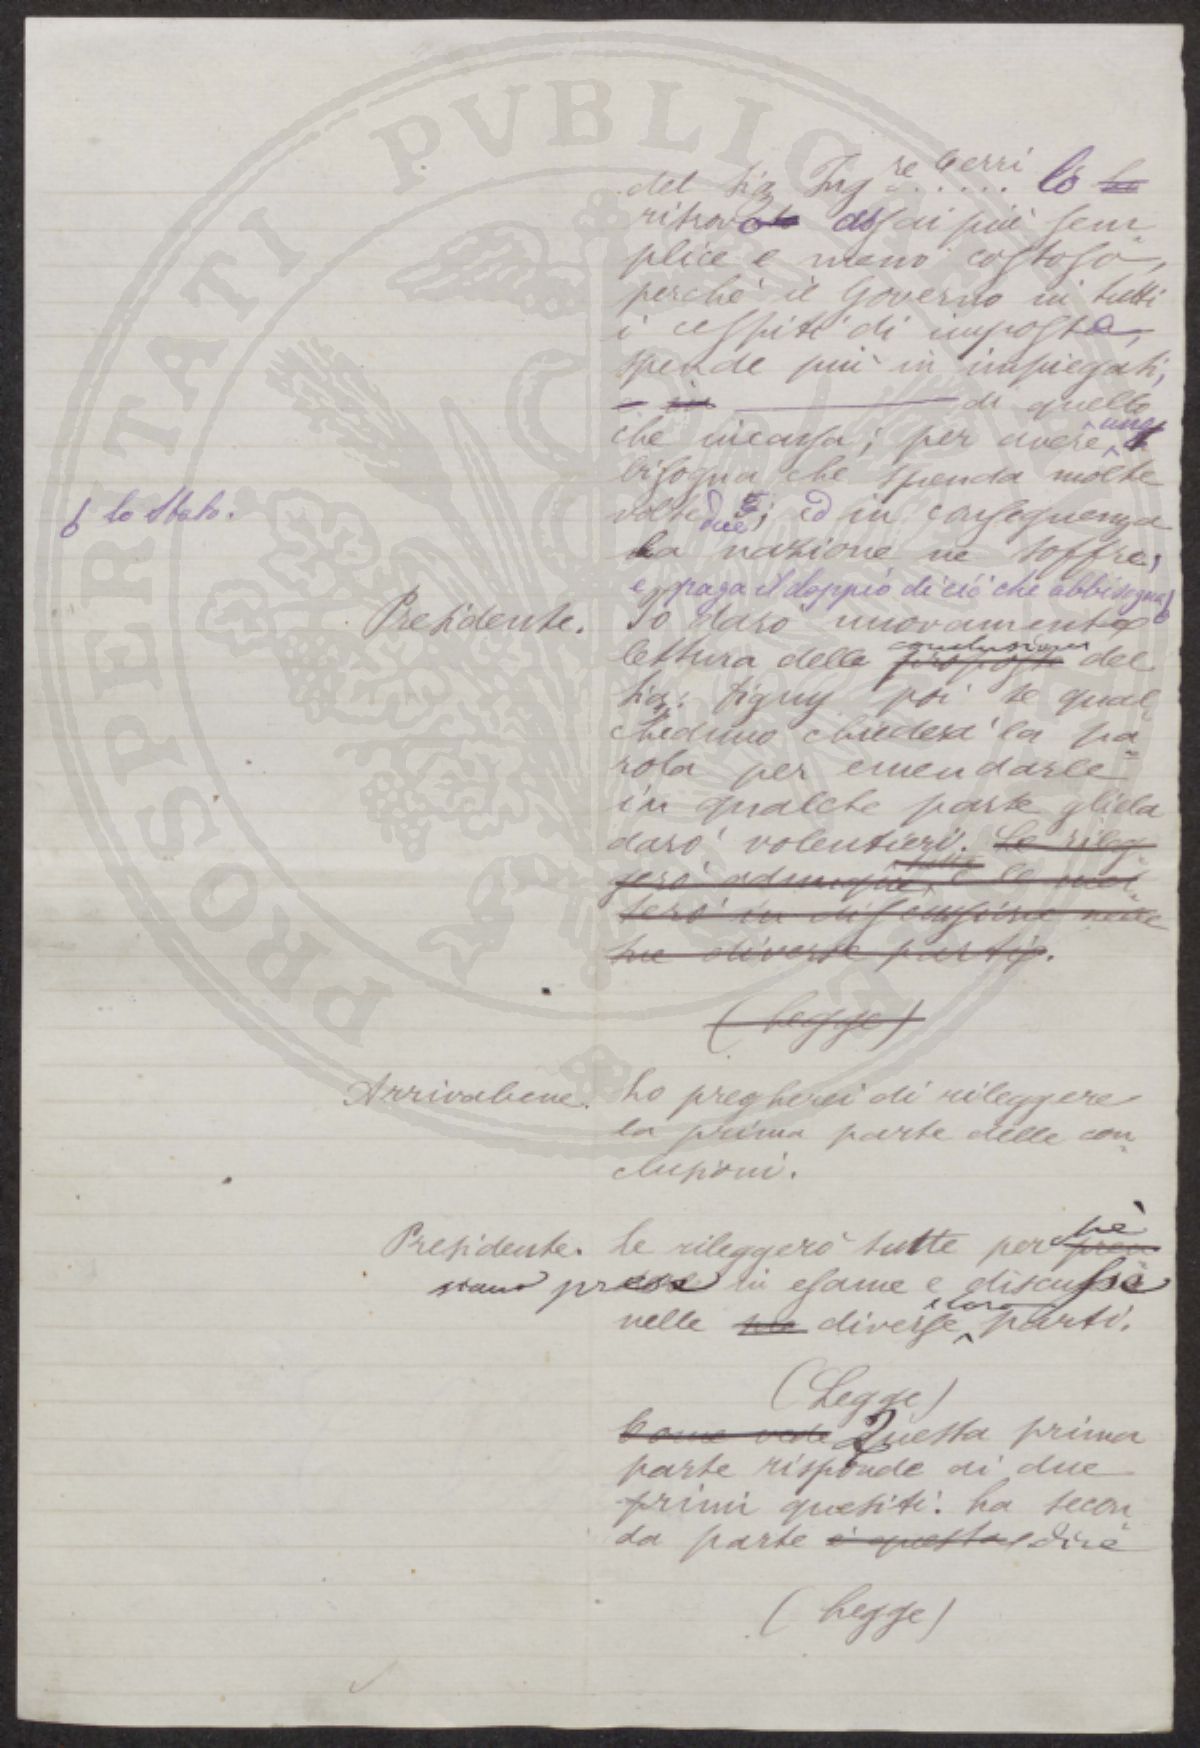 del Sig Ing.re Cerri ..... lo ho
ritrovo assai più sem-
plice e meno costoso,
perchè il Governo in tutti
i cespiti di imposta,
spende più in impiegati,
e in di quello
che incassa; per avere uno
bisogna che spenda molte
volte due; ed in conseguenza
lo Stato.
la nazione ne soffre,
e paga il doppio di ciò che abbisogna
Presidente. Io darò nuovamente
lettura delle proposte conclusioni del
Sig. Tigny poi se qual-
cheduno chiederà la pa-
rola per emendarle
in qualche parte gliela
darò volentieri. Le rileg-
gerò adunque tutte e le met-
terò in discussione nelle
sue diverse parti.
(Legge)
Arrivabene. Lo pregherei di rileggere
la prima parte delle con-
clusioni.
Presidente. Le rileggerò tutte perchè
siano prese in esame e discusse
nelle sue diverse loro parti.
(Legge)
Come vede Questa prima
parte risponde ai due
primi quesiti. La secon-
da parte è questa dice
(Legge)
PROSPERITATI PVBLICAE